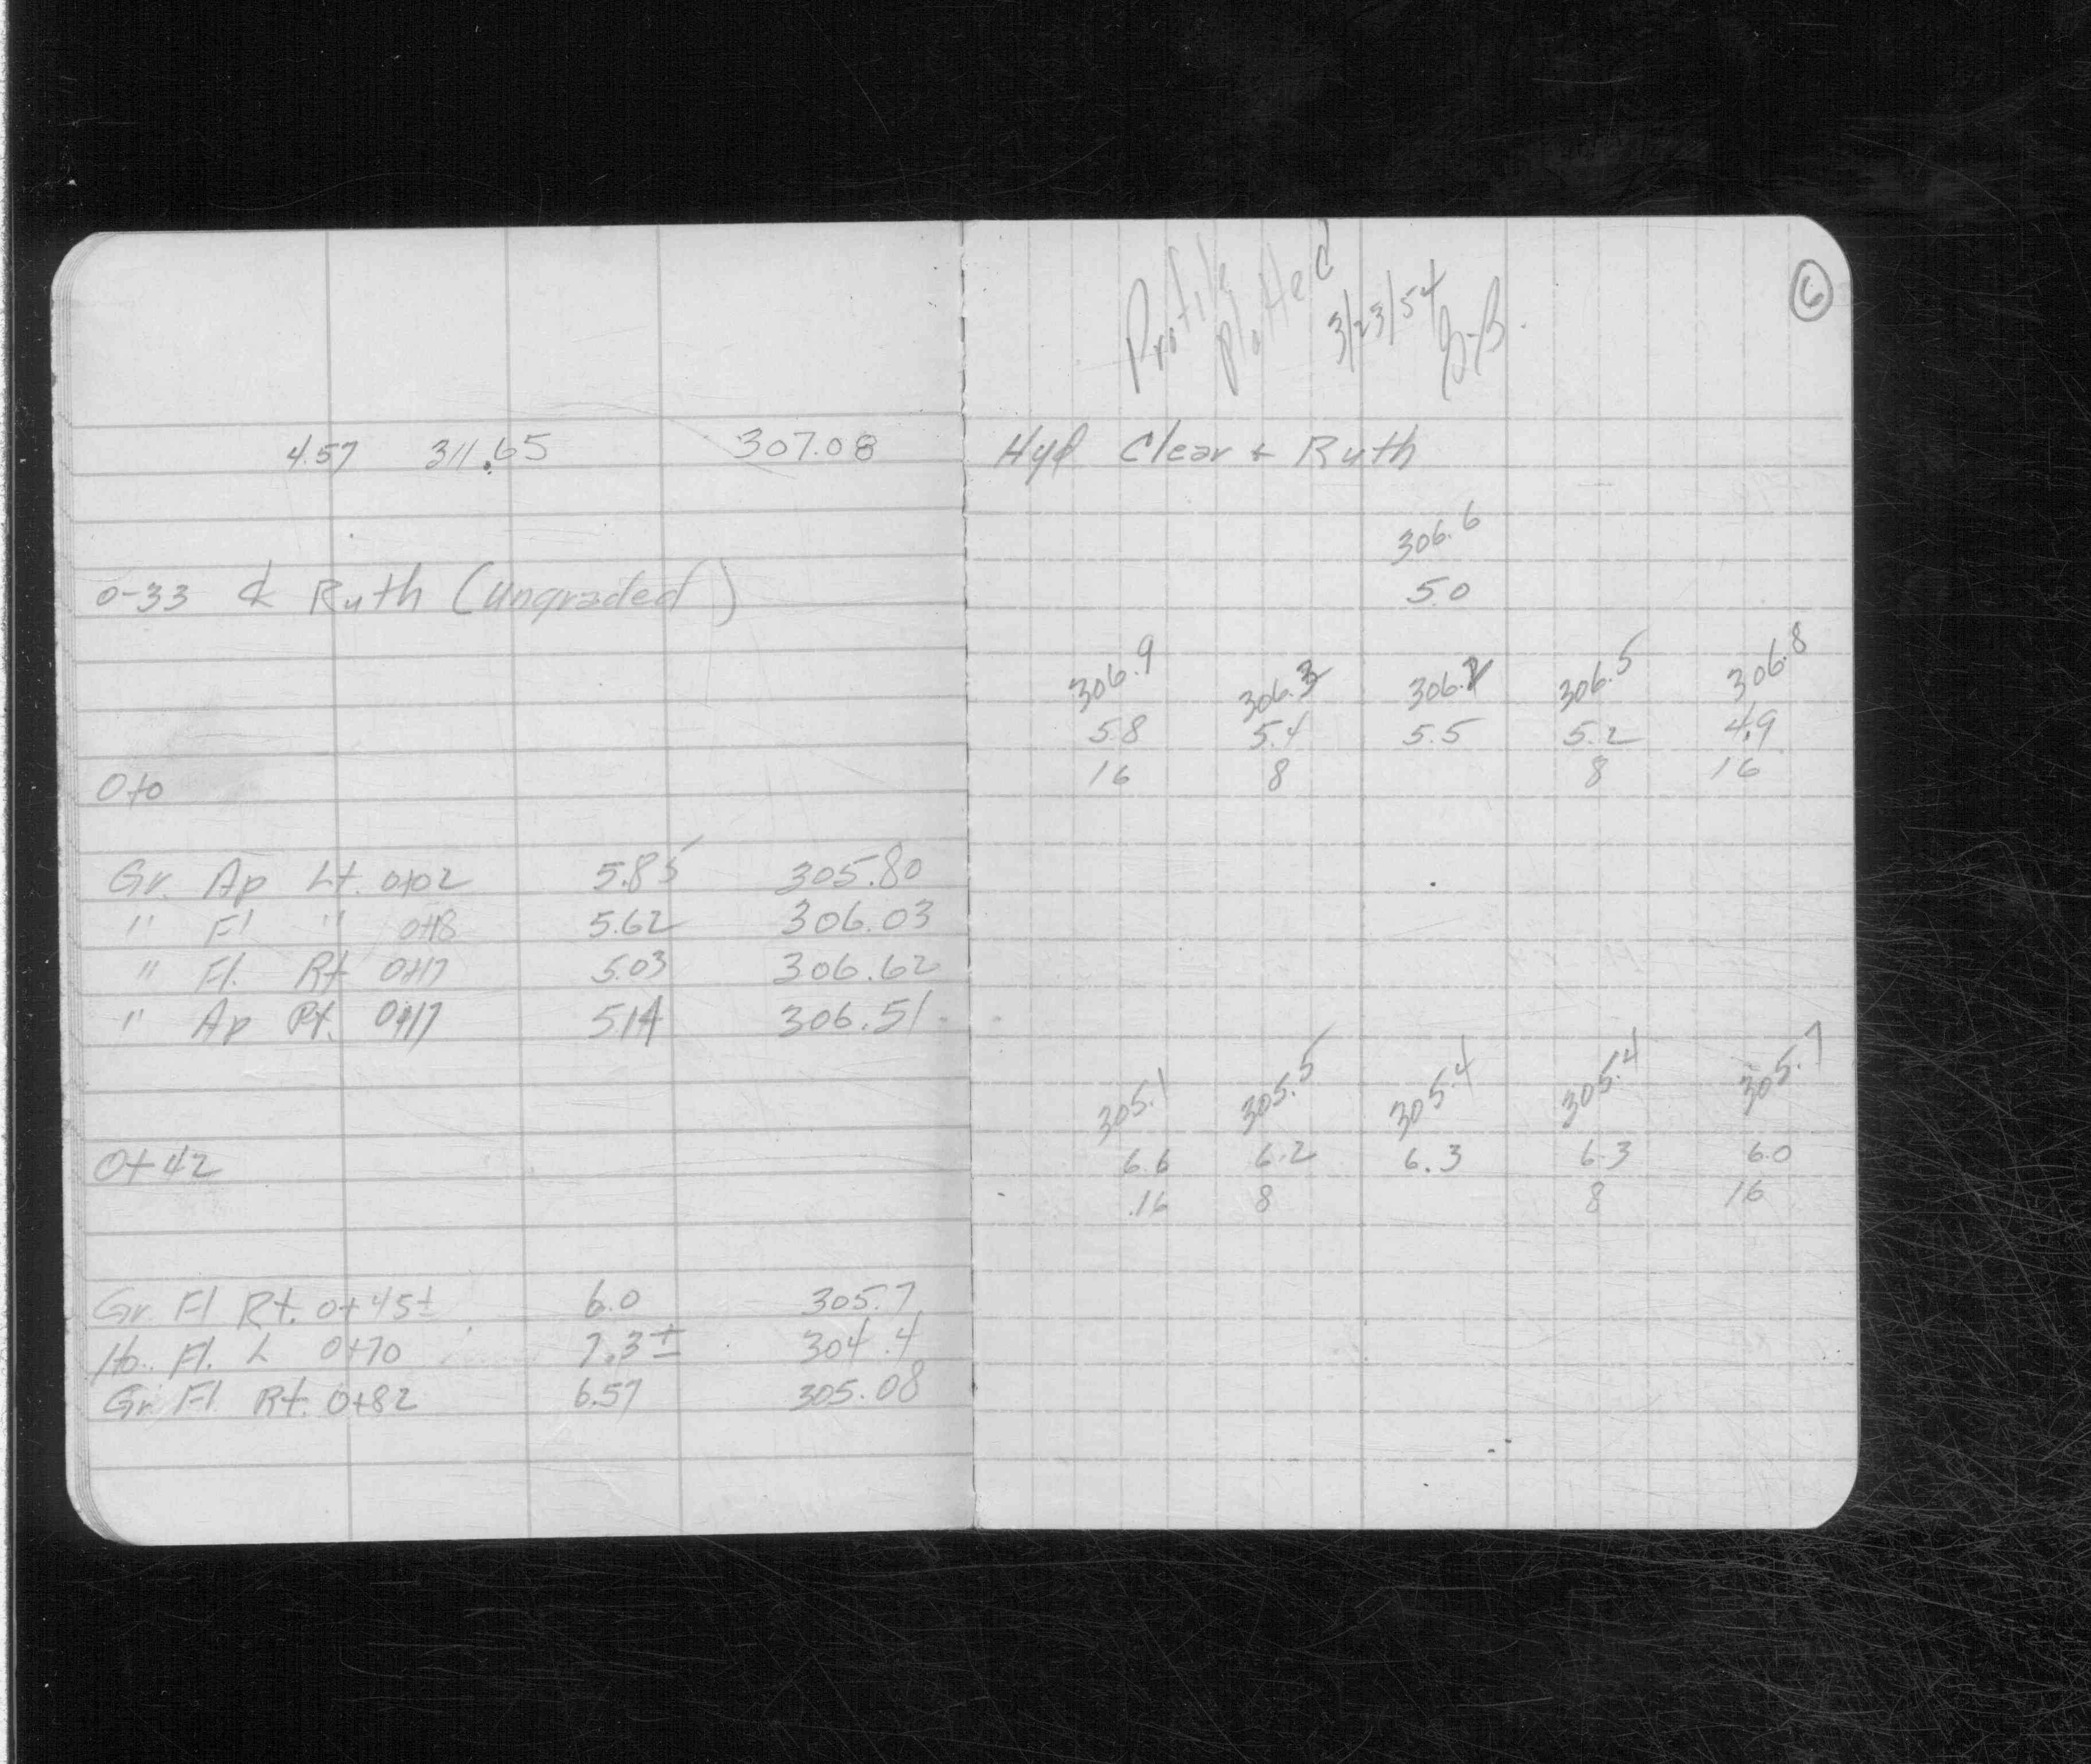 Profile plotted 3/23/54
6
4.57 311.65 307.08 Hyd Clear + Ruth
306.6
0-33 ℄ Ruth (Ungraded) 5.0
306.9 306.3 306.2 306.5 306.8
5.8 5.4 5.5 5.2 4.9
0+0 16 8 8 16
Gr. Ap Lt. 0+02 5.85 305.80
" Fl " 0+18 5.62 306.03
" Fl. Rt 0+17 5.03 306.62
" Ap Rt. 0+17 5.14 306.51
305.1 305.5 305.4 305.4 305.7
0+42 6.6 6.2 6.3 6.3 6.0
16 8 8 16
Gr Fl Rt. 0+45± 6.0 305.7
Ho. Fl. L 0+70 7.3± 304.4
Gr Fl Rt. 0+82 6.57 305.08